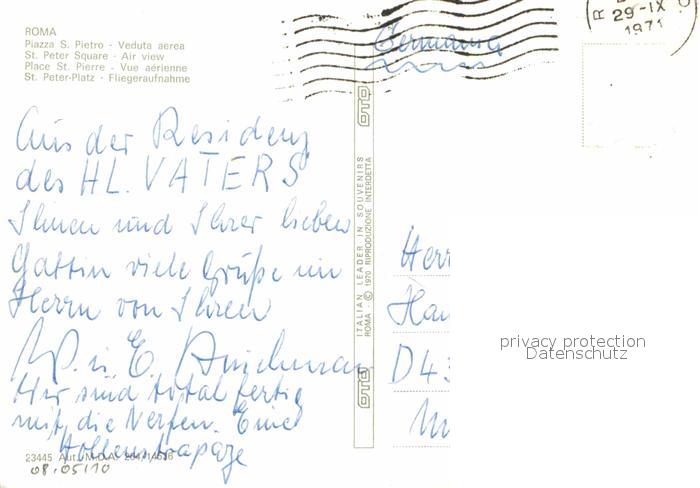 ROMA
Piazza S. Pietro - Veduta aerea
St. Peter Square - Air view
Place St. Pierre - Vue aérienne
St. Peter-Platz - Fliegeraufnahme
29-IX
1971
Germania
Aus der Residenz
des HL. VATERS
Ihnen und Ihrer lieben
Gattin viele Grüße im
Herrn von Ihren
W. u. E.
Wir sind total fertig
mit die Nerfen. Eine
Höllenstrapaze
23445 Aut. M.D.A.
08.05/10
OTO
ITALIAN LEADER IN SOUVENIRS
ROMA - © 1970 RIPRODUZIONE INTERDETTA
OTO
Herr
D 43
privacy protection
Datenschutz